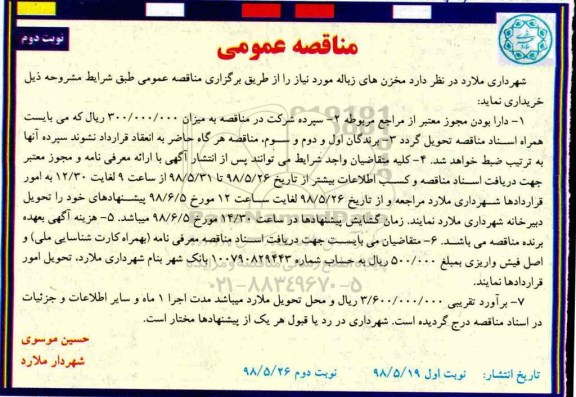 نوبت دوم
مناقصه عمومی
شهرداری ملارد در نظر دارد مخزن های زباله مورد نیاز را از طریق برگزاری مناقصه عمومی طبق شرایط مشروحه ذیل
خریداری نماید:
۱- دارا بودن مجوز معتبر از مراجع مربوطه ۲- سپرده شرکت در مناقصه به میزان ۳۰۰/۰۰۰/۰۰۰ ریال که می بایست
همراه اسناد مناقصه تحویل گردد ۳- برندگان اول و دوم و سوم، مناقصه هر گاه حاضر به انعقاد قرارداد نشوند سپرده آنها
به ترتیب ضبط خواهد شد. ۴- کلیه متقاضیان واجد شرایط می توانند پس از انتشار آگهی با ارائه معرفی نامه و مجوز معتبر
جهت دریافت اسناد مناقصه و کسب اطلاعات بیشتر از تاریخ ۹۸/۵/۲۶ تا ۹۸/۵/۳۱ از ساعت ۹ لغایت ۱۲/۳۰ به امور
قراردادها شهرداری ملارد مراجعه و از تاریخ ۹۸/۵/۲۶ لغایت ساعت ۱۲ مورخ ۹۸/۶/۵ پیشنهادهای خود را تحویل
دبیرخانه شهرداری ملارد نمایند. زمان گشایش پیشنهادها در ساعت ۱۴/۳۰ مورخ ۹۸/۶/۵ میباشد. ۵- هزینه آگهی بعهده
برنده مناقصه می باشد. ۶- متقاضیان می بایست جهت دریافت اسناد مناقصه معرفی نامه (بهمراه کارت شناسایی ملی) و
اصل فیش واریزی بمبلغ ۵۰۰/۰۰۰ ریال به حساب شماره ۱۰۰۷۹۰۸۲۹۴۴۳ بانک شهر بنام شهرداری ملارد، تحویل امور
قراردادها نمایند.
۷- برآورد تقریبی ۳/۶۰۰/۰۰۰/۰۰۰ ریال و محل تحویل ملارد میباشد مدت اجرا ۱ ماه و سایر اطلاعات و جزئیات
در اسناد مناقصه درج گردیده است. شهرداری در رد یا قبول هر یک از پیشنهادها مختار است.
حسین موسوی
شهردار ملارد
تاریخ انتشار: نوبت اول ۹۸/۵/۱۹ نوبت دوم ۹۸/۵/۲۶
۰۲۱-۸۸۳۴۹۶۷۰-۵